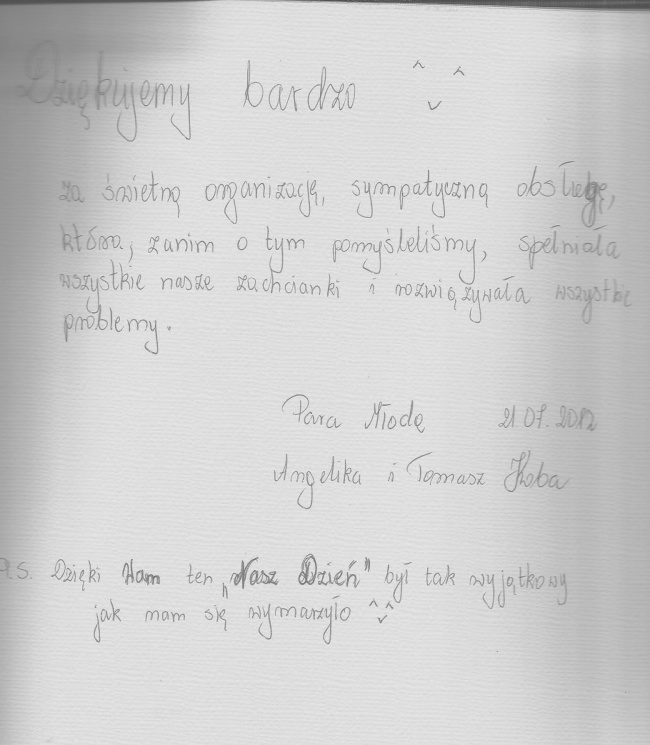 Dziękujemy bardzo ^ ^
za świetną organizację, sympatyczną obsługę,
która, zanim o tym pomyśleliśmy, spełniała
wszystkie nasze zachcianki i rozwiązywała wszystkie
problemy.
Para Młodę 21 07. 2012
Angelika i Tomasz
P.S. Dzięki Wam ten „Nasz Dzień" był tak wyjątkowy
jak nam się wymarzyło ^^